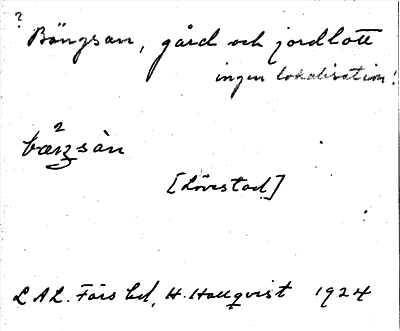 ? Bängsan, gård och jordlott
ingen lokalisation!
2
bæŋsàn
[Lövestad]
L A L. Färs hd, H. Hallqvist 1924